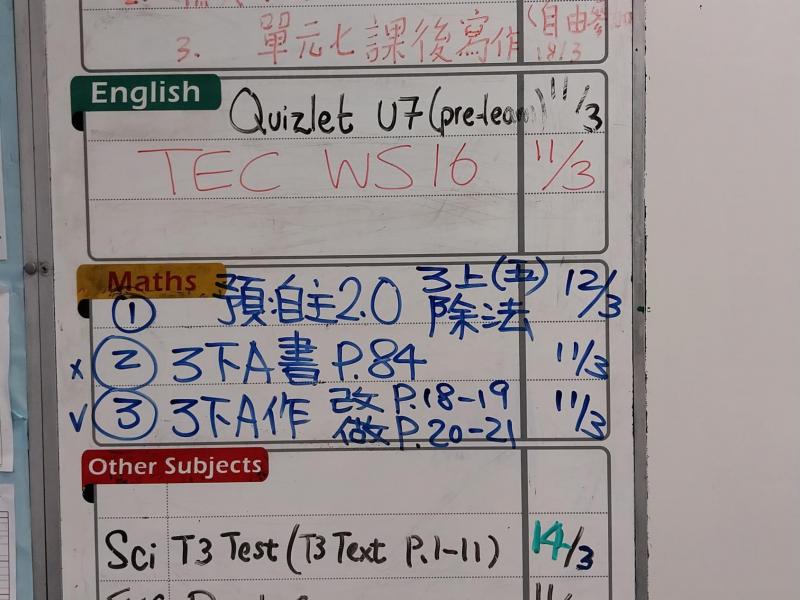 3. 單元七課後寫作 (自由參加
18/3
English
Quizlet U7 (pre-learn) 11/3
TEC WS16 11/3
Maths
① 預:自主2.0 3上(五)除法 12/3
x ② 3下A書 P.84 11/3
v ③ 3下A作 改 P.18-19 11/3
做 P.20-21
Other Subjects
Sci T3 Test (T3 Text P.1-11) 14/3